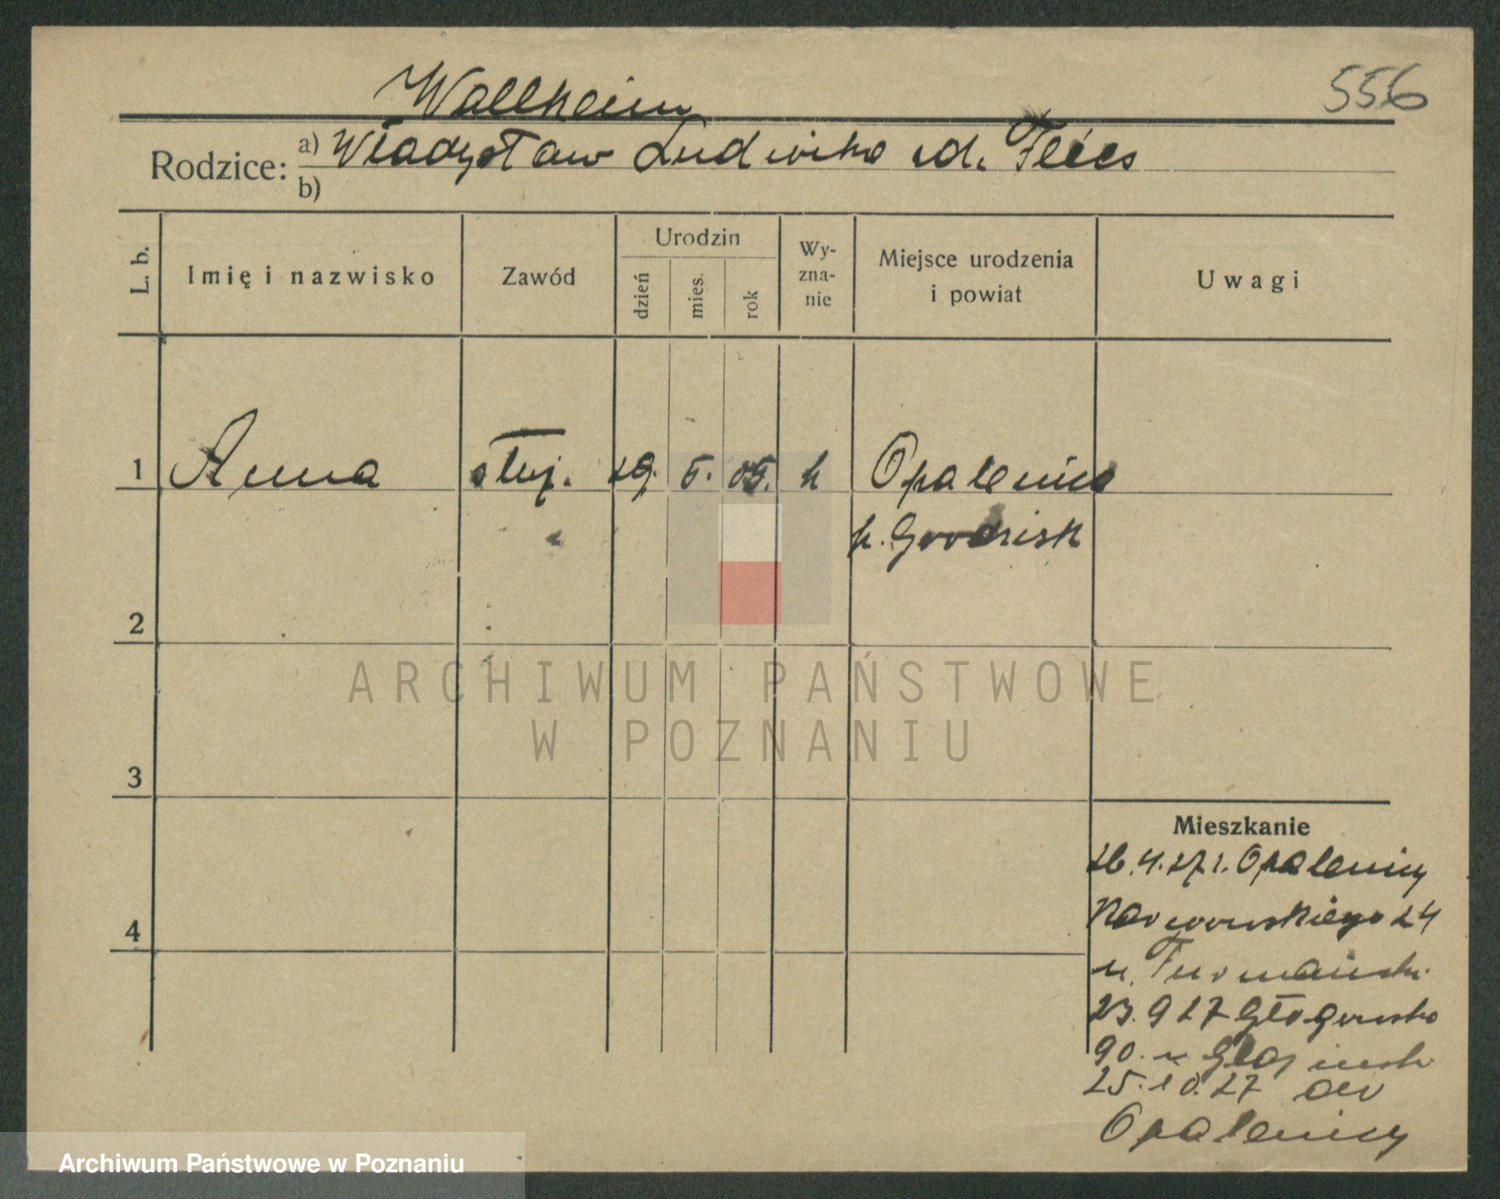 556
Wallheim
Rodzice: a) Władysław Ludwika zd.
b)
L. b.
Imię i nazwisko
Zawód
Urodzin
dzień
mies.
rok
Wy-
zna-
nie
Miejsce urodzenia
i powiat
Uwagi
1 Anna służ. 29. 5. 05. k Opalenica
p. Grodzisk
2
3
4
Mieszkanie
26.4.27 z Opalenicy
24
u. Furmański
23.9 27 Głogowska
90. u
25.10.27 do
Opalenicy
ARCHIWUM PAŃSTWOWE
W POZNANIU
Archiwum Państwowe w Poznaniu